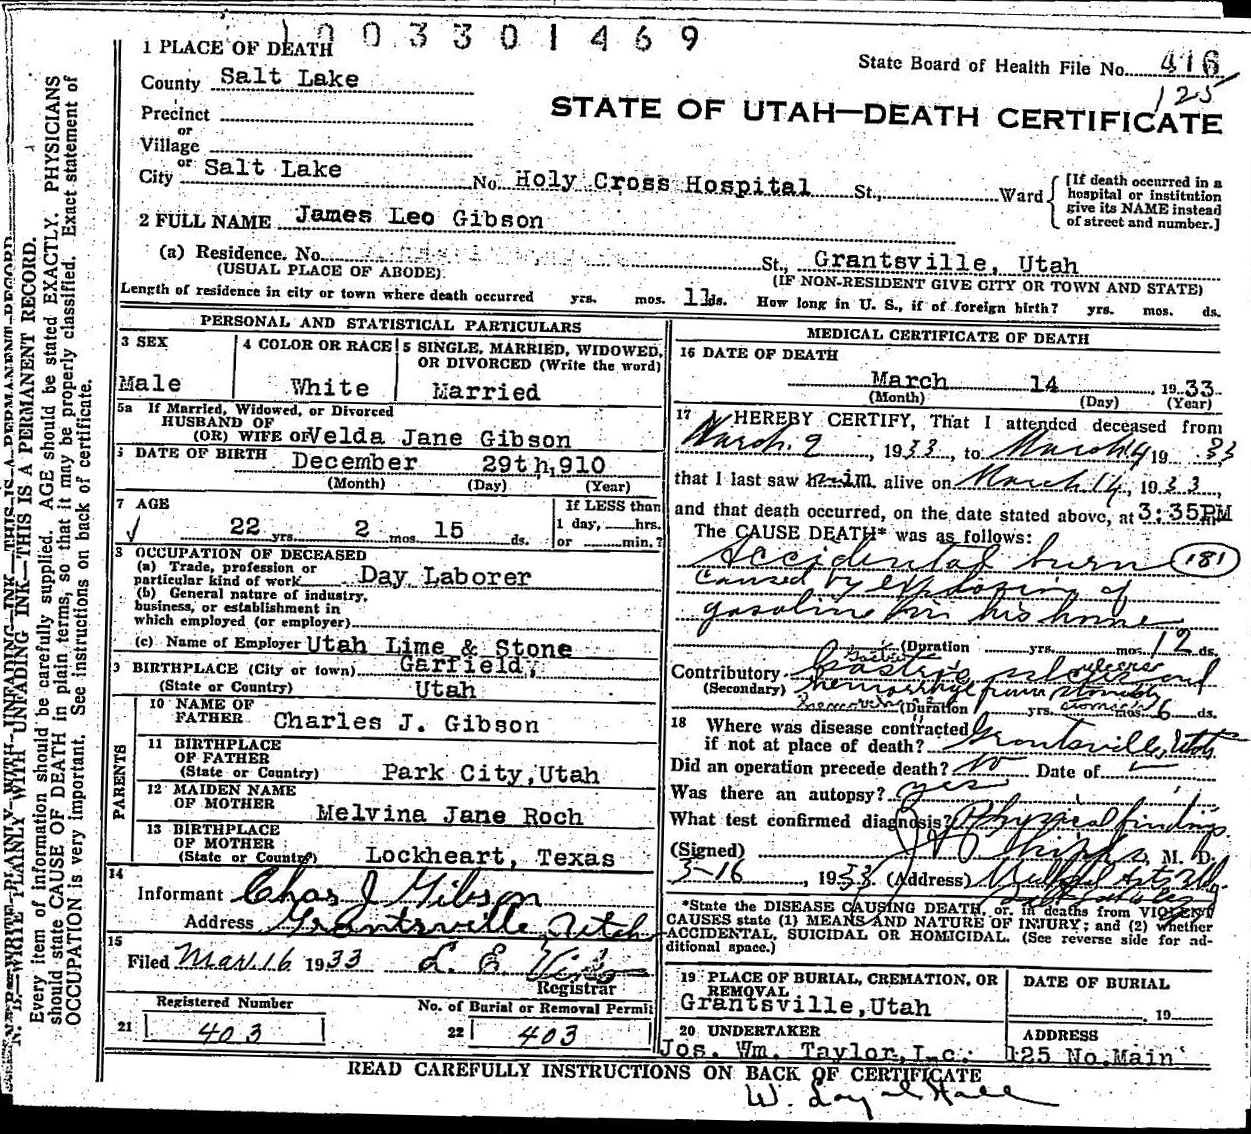 1003301469
1 PLACE OF DEATH
State Board of Health File No. 416
125
County Salt Lake
STATE OF UTAH—DEATH CERTIFICATE
Precinct
or
Village
or
City Salt Lake No. Holy Cross Hospital St., Ward
[If death occurred in a hospital or institution give its NAME instead of street and number.]
2 FULL NAME James Leo Gibson
(a) Residence. No. St., Grantsville, Utah
(USUAL PLACE OF ABODE) (IF NON-RESIDENT GIVE CITY OR TOWN AND STATE)
Length of residence in city or town where death occurred yrs. mos. 11 ds. How long in U. S., if of foreign birth? yrs. mos. ds.
PERSONAL AND STATISTICAL PARTICULARS
3 SEX
Male
4 COLOR OR RACE
White
5 SINGLE, MARRIED, WIDOWED, OR DIVORCED (Write the word)
Married
5a If Married, Widowed, or Divorced
HUSBAND OF
(OR) WIFE OF Velda Jane Gibson
DATE OF BIRTH December 29th,910
(Month) (Day) (Year)
7 AGE
22 yrs. 2 mos. 15 ds.
If LESS than
1 day, hrs.
or min.?
8 OCCUPATION OF DECEASED
(a) Trade, profession or
particular kind of work Day Laborer
(b) General nature of industry,
business, or establishment in
which employed (or employer)
(c) Name of Employer Utah Lime & Stone
9 BIRTHPLACE (City or town) Garfield,
(State or Country) Utah
PARENTS
10 NAME OF
FATHER Charles J. Gibson
11 BIRTHPLACE
OF FATHER
(State or Country) Park City,Utah
12 MAIDEN NAME
OF MOTHER Melvina Jane Roch
13 BIRTHPLACE
OF MOTHER
(State or Country) Lockheart, Texas
14
Informant Chas J Gibson
Address Grantsville Utah
15
Filed Mar. 16 1933 L. E.
Registrar
Registered Number
21 403
No. of Burial or Removal Permit
22 403
MEDICAL CERTIFICATE OF DEATH
16 DATE OF DEATH
March 14 1933
(Month) (Day) (Year)
17 I HEREBY CERTIFY, That I attended deceased from
March 9, 1933, to March 14 1933
that I last saw him alive on March 14, 1933,
and that death occurred, on the date stated above, at 3:35PM
The CAUSE DEATH* was as follows:
Accidental burn 181
caused by explosion of
gasoline in his home
(Duration yrs. mos. 12 ds.
Contributory Gastric ulcer and
(Secondary) hemorrhage from stomach
(Duration yrs. mos. 6 ds.
18 Where was disease contracted
if not at place of death? Grantsville, Utah
Did an operation precede death? no Date of
Was there an autopsy? yes
What test confirmed diagnosis? Physical findings
(Signed) M. D.
5-16, 1933. (Address)
*State the DISEASE CAUSING DEATH, or, in deaths from VIOLENT
CAUSES state (1) MEANS AND NATURE OF INJURY; and (2) whether
ACCIDENTAL, SUICIDAL OR HOMICIDAL. (See reverse side for additional space.)
19 PLACE OF BURIAL, CREMATION, OR
REMOVAL
Grantsville,Utah
DATE OF BURIAL
, 19
20 UNDERTAKER
Jos. Wm. Taylor,Inc.
ADDRESS
125 No.Main
READ CAREFULLY INSTRUCTIONS ON BACK OF CERTIFICATE
W. Loyal Hall
N. B.—WRITE PLAINLY WITH UNFADING INK—THIS IS A PERMANENT RECORD.
Every item of information should be carefully supplied. AGE should be stated EXACTLY. PHYSICIANS
should state CAUSE OF DEATH in plain terms, so that it may be properly classified. Exact statement of
OCCUPATION is very important. See instructions on back of certificate.